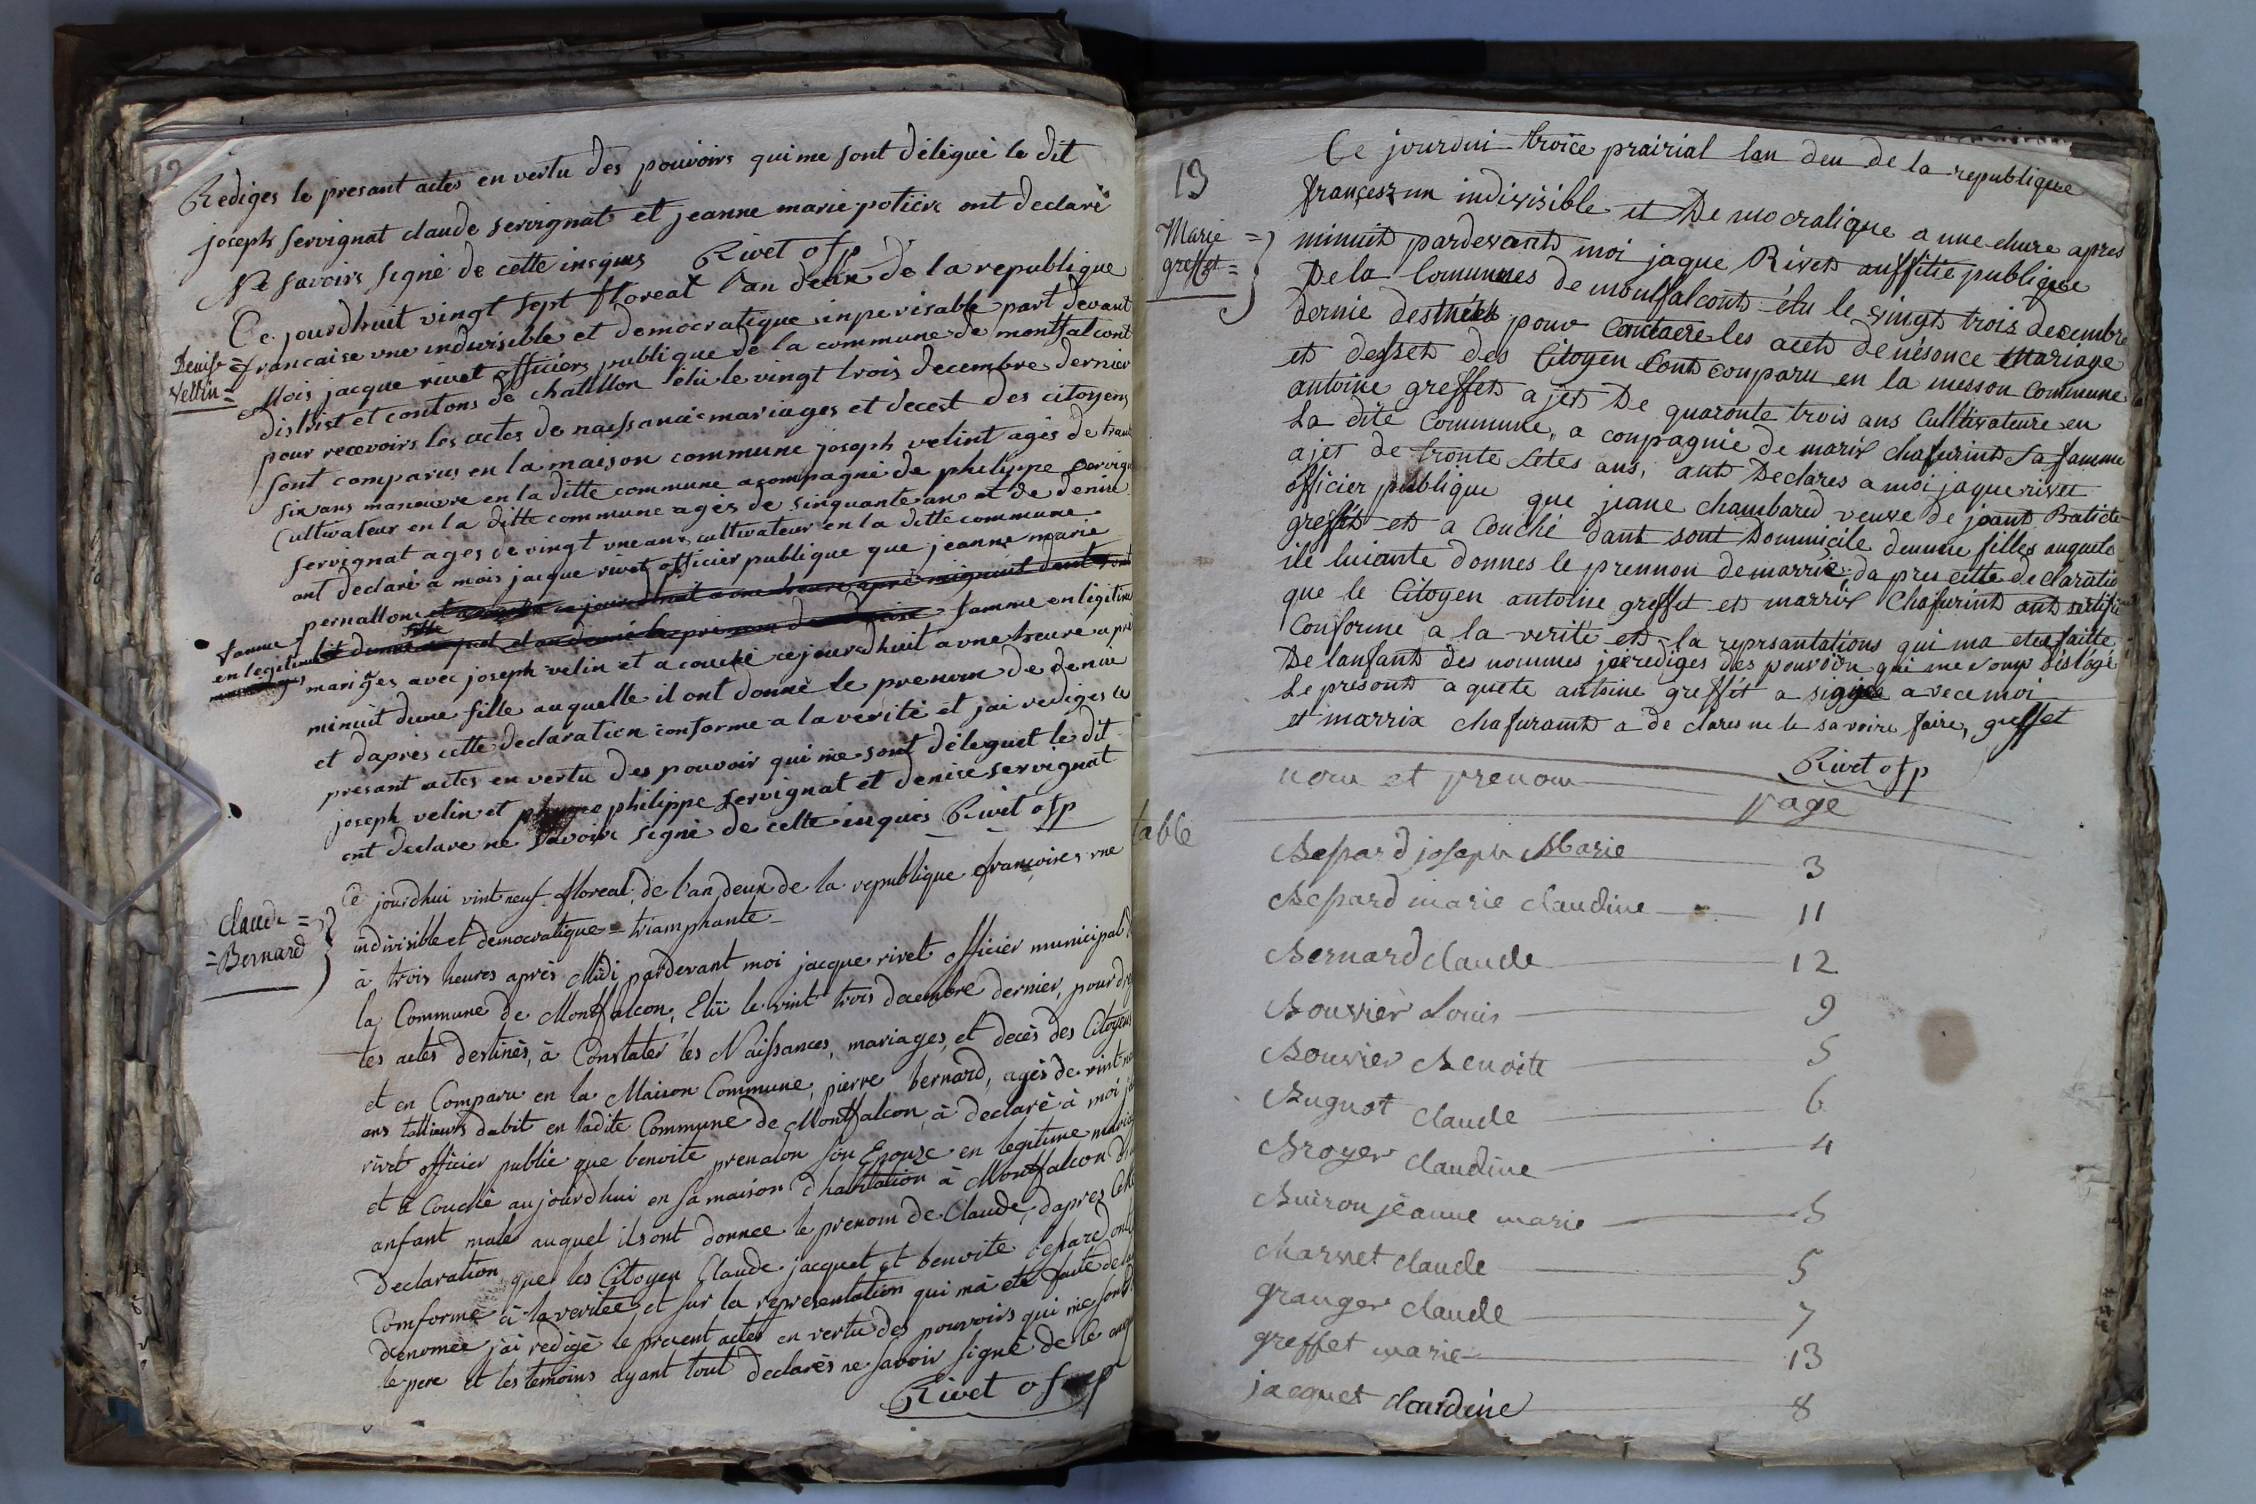 12
Rediges le presant actes en vertu des pouvoirs qui me sont délégué le dit
joseph servignat claude servignat et jeanne marie potiere ont declaré
Ne savoirs signé de cette inquis Rivet ofp
Ce jourdhuit vingt sept floreal l'an deux de la republique
Denise =
francaise une indivisible et democratique inperisable part devant
Vellin =
Mois jacque rivet officiers publique de la commune de montfalcont
distrist et contons de chatillon élu le vingt trois decembre dernier
pour recevoirs les actes de naissance mariages et decest des citoyens
sont comparus en la maison commune joseph velint agés de trant
six ans maneuvre en la ditte commune acompagné de philippe servign
Cultivateur en la ditte commune agés de sinquante ans et de denise
servignat ages de vingt une ans cultivateur en la ditte commune
ont declaré a mois jacque rivet officier publique que jeanne marie
pernallon et ce jourdhuit a une heure apres mignuit dant
famme en légitime
famme
en legitime
mariages avec joseph velin et a couché ce jourdhuit a une heure apré
minuit dune fille auquelle il ont donné le prenom de denise
et daprés cette declaration conforme a la verité et jai rediges le
presant actes en vertu des pouvoir qui me sont déleguet le dit
joseph velin et philippe servignat et denise servignat
ont declare ne savoir signé de cette inquis Rivet ofp
Claude =
= Bernard
Ce jourdhui vint neuf floreal, de l'an deux de la republique françoises une
indivisible et democratique = triamphante
à trois heures aprés Midi pardevant moi jacque rivet officier municipal
la Commune de Montfalcon, Elü le vint trois decembre dernier, pour
les actes destinés, à Constater les Naissances, mariages, et decés des Citoyens
et en Comparu en la Maison Commune, pierre bernard, agés de vint
ans tallieurs dabit en ladite Commune de Montfalcon, à declaré à moi
rivet officier public que benoite prenalon son Epouze en legitime
et à Couché aujourdhui en sa maison d'habitation à Montfalcon
anfant male auquel ils ont donnee le prenom de Claude, dapres
Declaration que les Citoyen Claude jacquet et benoite
Comforme à la veritee, et sur la representation qui ma ete faite
denomée jai redigé le present actes en vertu des pouvoirs qui me sont
le pere et les temoins ayant tout declarés ne savoir signé de le
Rivet ofp
13
Marie =
greffet =
Ce jourdui troice prairial lan deu de la republique
françesz un indivisible et De mocralique a une ehure apres
minuit pardevants moi jaque Rivets auffitié publique
De la Comunnes de monsfalconts élu le vingts trois decembre
dernié pour les acets de nésonce Mariage
et dessets des Citoyen Conts conparu en la messon Commune
antoine greffets a jets De quaronte trois ans Cultivateure en
La dite Commune, a conpagnie de marix chafurints Sa famme
ajet de tronte setes ans, ants Declares a moi jaque rivet
officier publique que jeane chambared veuve de joants Baticte
greffets ets a Couché dant sont Dommicile deunne filles auquele
ile luiante donnes le prennon de marrie, da pres cette declaratio
que le Citoyen antoine greffet ets marrix Chafurints ants sertifié
Conforme a la verité ets la reprsantations qui ma etee faitte
De lanfants des nommes jai rediges des pouvoir qui me
Le presonts a quete antoine greffét a signe avece moi
et marrix chafuraints a de clares ne le savoire faire, greffet
Rivet ofp
nom et prenom page
table
Bepard joseph Marie 3
Bepard marie claudine 11
Bernard claude 12
Bouvier Louis 9
Bouvier Benoite 5
Buguot Claude 6
Broyer Claudine 4
Buiron jéanne marie 5
charvet claude 5
granger claude 7
greffet marie 13
jacquet claudine 8